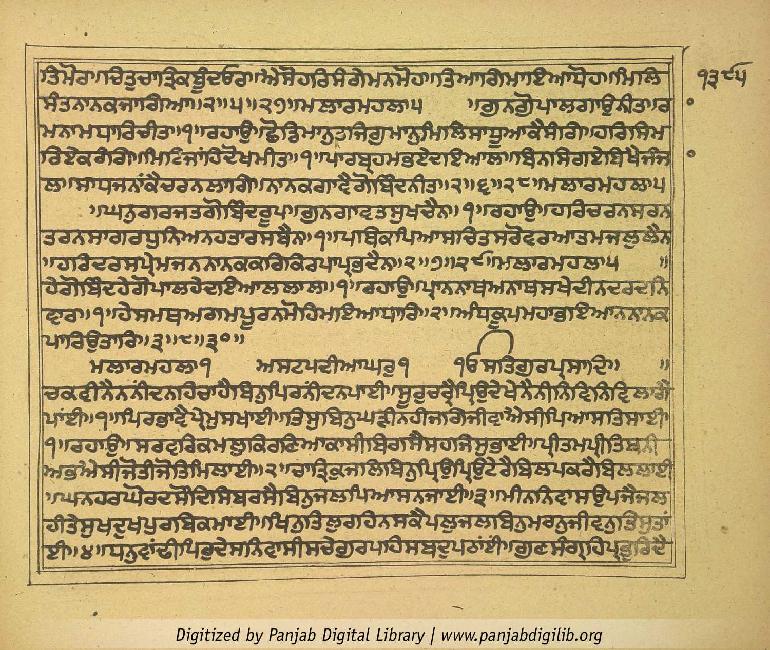 ੧੩੯੫
ਤਿਮੋਰਾ॥ਚਿਤੁਚਾਤ੍ਰਿਕਬੂੰਦਓਰਾ॥ਐਸੇਹਰਿਸੰਗੇਮਨਮੋਹ॥ਤਿਆਗਿਮਾਇਆਧੋਹ॥ਮਿਲਿ
ਸੰਤਨਾਨਕਜਾਗਿਆ॥੨॥੫॥੨੭॥ਮਲਾਰਮਹਲਾ੫ ॥ਗੁਨਗੋੁਪਾਲਗਾਉਨੀਤ॥ਰ
ਮਨਾਮਧਾਰਿਚੀਤ॥੧॥ਰਹਾਉ॥ਛੋਡਿਮਾਨੁਤਜਿਗੁਮਾਨੁਮਿਲਿਸਾਧੂਆਕੈਸੰਗਿ॥ਹਰਿਸਿਮ
ਰਿਏਕਰੰਗਿ॥ਮਿਟਿਜਾਂਹਿਦੋਖਮੀਤ॥੧॥ਪਾਰਬ੍ਰਹਮਭਏਦਇਆਲਾ॥ਬਿਨਸਿਗਏਬਿਖੈਜੰਜ
ਲਾ॥ਸਾਧਜਨਾਂਕੈਚਰਨਲਾਗਿ॥ਨਾਨਕਗਾਵੈਗੋਬਿੰਦਨੀਤ॥੨॥੬॥੨੮॥ਮਲਾਰਮਹਲਾ੫
॥ਘਨੁਗਰਜਤਗੋਬਿੰਦਰੂਪ॥ਗੁਨਗਾਵਤਸੁਖਚੈਨ॥੧॥ਰਹਾਉ॥ਹਰਿਚਰਨਸਰਨ
ਤਰਨਸਾਗਰਧੁਨਿਅਨਹਤਾਰਸਬੈਨ॥੧॥ਪਾਥਿਕਪਿਆਸਚਿਤਸਰੋਵਰਆਤਮਜਲੁਲੈਨ
॥ਹਰਿਦਰਸਪ੍ਰੇਮਜਨਨਾਨਕਕਰਿਕਿਰਪਾਪ੍ਰਭਦੈਨ॥੨॥੭॥੨੯॥ਮਲਾਰਮਹਲਾ੫ ॥
ਹੇਗੋਬਿੰਦਹੇਗੋਪਾਲਹੇਦਇਆਲਲਾਲ॥੧॥ਰਹਾਉ॥ਪ੍ਰਾਨਨਾਥਅਨਾਥਸਖੇਦੀਨਦਰਦਨਿ
ਵਾਰ॥੧॥ਹੇਸਮਥਅਗਮਪੂਰਨਮੋਹਿਮਾਇਆਧਾਰਿ॥੨॥ਅੰਧਕੂਪਮਹਾਭਇਆਨਨਾਨਕ
ਪਾਰਿਉਤਾਰਿ॥੩॥੮॥੩੦॥
ਮਲਾਰਮਹਲਾ੧ ਅਸਟਪਦੀਆਘਰੁ੧ ੧ਓਸਤਿਗੁਰਪ੍ਰਸਾਦਿ॥ ॥
ਚਕਵੀਨੈਨਨੀਦਨਹਿਚਾਹੈਬਿਨੁਪਿਰਨੀਦਨਪਾਈ॥ਸੂਰੁਚਰ੍ਹੈਪ੍ਰਿਉਦੇਖੈਨੈਨੀਨਿਵਿਨਿਵਿਲਾਗੈ
ਪਾਂਈ॥੧॥ਪਿਰਭਾਵੈਪ੍ਰੇਮੁਸਖਾਈ॥ਤਿਸੁਬਿਨੁਘੜੀਨਹੀਜਗਿਜੀਵਾਐਸੀਪਿਆਸਤਿਸਾਈ
੧॥ਰਹਾਉ॥ਸਰਵਰਿਕਮਲੁਕਿਰਣਿਆਕਾਸੀਬਿਗਸੈਸਹਜਿਸੁਭਾਈ॥ਪ੍ਰੀਤਮਪ੍ਰੀਤਿਬਨੀ
ਅਭਐਸੀਜੋਤੀਜੋਤਿਮਿਲਾਈ॥੨॥ਚਾਤ੍ਰਿਕੁਜਲਬਿਨੁਪ੍ਰਿਉਪ੍ਰਿਉਟੇਰੈਬਿਲਪਕਰੈਬਿਲਲਾਈ
॥ਘਨਹਰਘੋਰਦਸੌਦਿਸਿਬਰਸੈਬਿਨੁਜਲਪਿਆਸਨਜਾਈ॥੩॥ਮੀਨਨਿਵਾਸਉਪਜੈਜਲ
ਹੀਤੇਸੁਖਦੁਖਪੁਰਬਿਕਮਾਈ॥ਖਿਨੁਤਿਲੁਰਹਿਨਸਕੈਪਲੁਜਲਬਿਨੁਮਰਨੁਜੀਵਨੁਤਿਸੁਤਾਂ
ਈ॥੪॥ਧਨੁਵਾਂਢੀਪਿਰੁਦੇਸਨਿਵਾਸੀਸਚੇਗੁਰਪਹਿਸਬਦੁਪਠਾਂਈ॥ਗੁਣਸੰਗ੍ਰਹਿਪ੍ਰਭੁਰਿਦੈ
Digitized by Panjab Digital Library | www.panjabdigilib.org